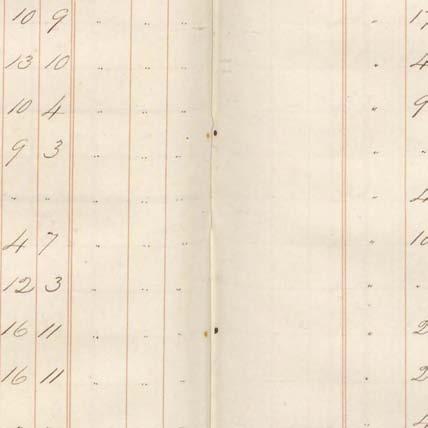 10 9 " " " " 17
13 10 " " " " 4
10 4 " " " " 9
9 3 " " " " "
" " " " " " 4
4 7 " " " " 10
12 3 " " " " "
16 11 " " " " 2
16 11 " " " " 2